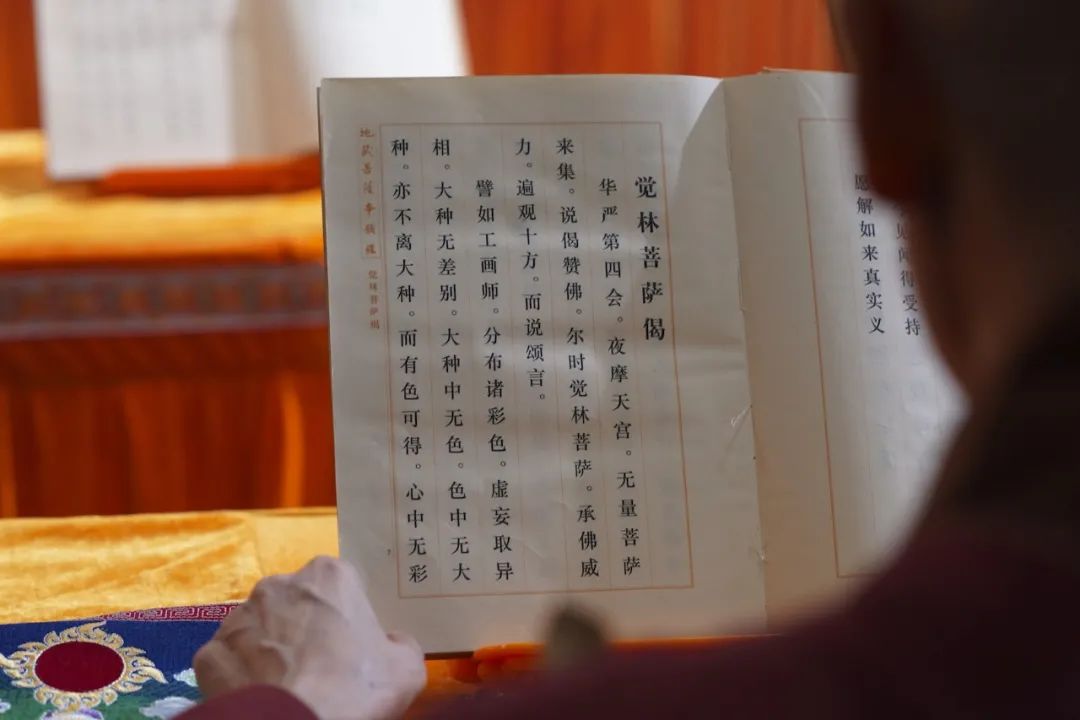 见闻得受持
愿解如来真实义
觉林菩萨偈
华严第四会。夜摩天宫。无量菩萨
来集。说偈赞佛。尔时觉林菩萨。承佛威
力。遍观十方。而说颂言。
譬如工画师。分布诸彩色。虚妄取异
相。大种无差别。大种中无色。色中无大
种。亦不离大种。而有色可得。心中无彩
地藏菩薩本願經
觉林菩萨偈
7